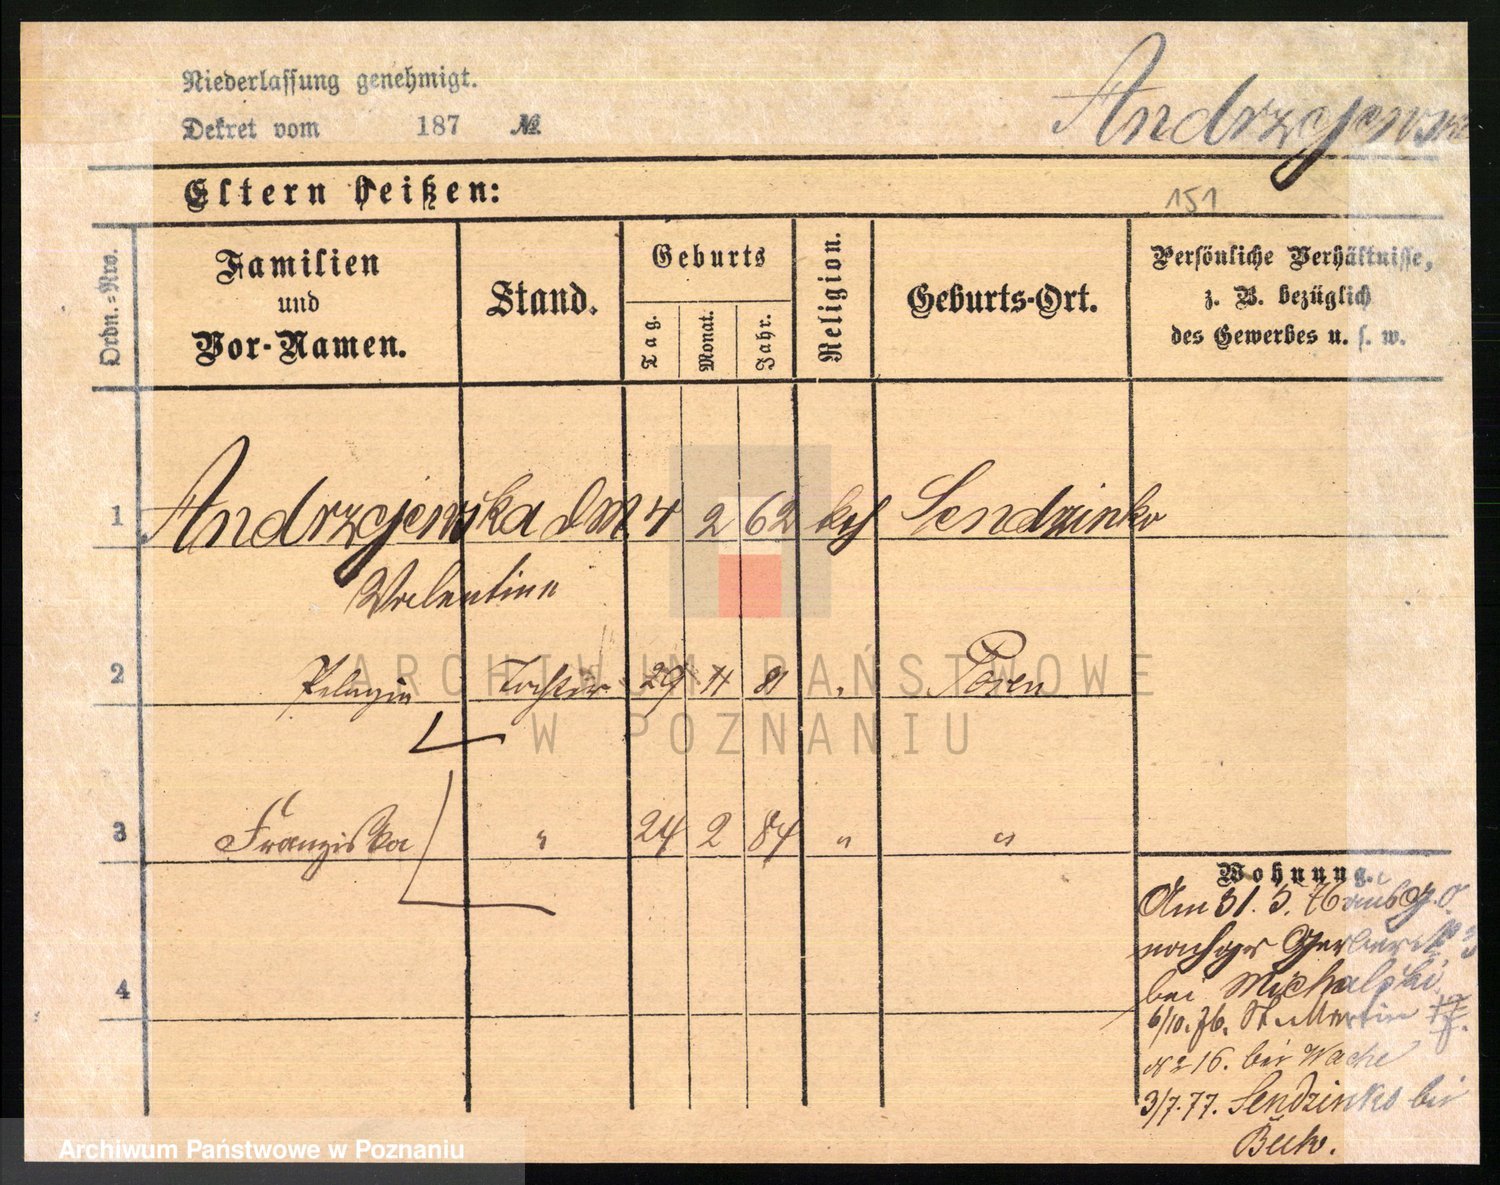 Niederlassung genehmigt.
Dekret vom 187 №
Andrzejewska
Eltern heißen:
151
Ordn.=Nro.
Familien und Vor-Namen.
Stand.
Geburts
Tag.
Monat.
Jahr.
Religion.
Geburts-Ort.
Persönliche Verhältnisse,
z. B. bezüglich
des Gewerbes u. s. w.
1 Andrzejewska DM. 4 2 62 kth Sendzinko
Valentine
2 Pelagia Tochter 29 11 81 " Posen
3 Franziska " 24 2 84 " "
4
Wohnung.
Am 31. 3. 76 aus
nach Gerberst
bei Michalski
6/10. 76. St. Martin
№ 16. bei Wache
3/7. 77. Sendzinko bei
Beck.
ARCHIWUM PAŃSTWOWE
W POZNANIU
Archiwum Państwowe w Poznaniu